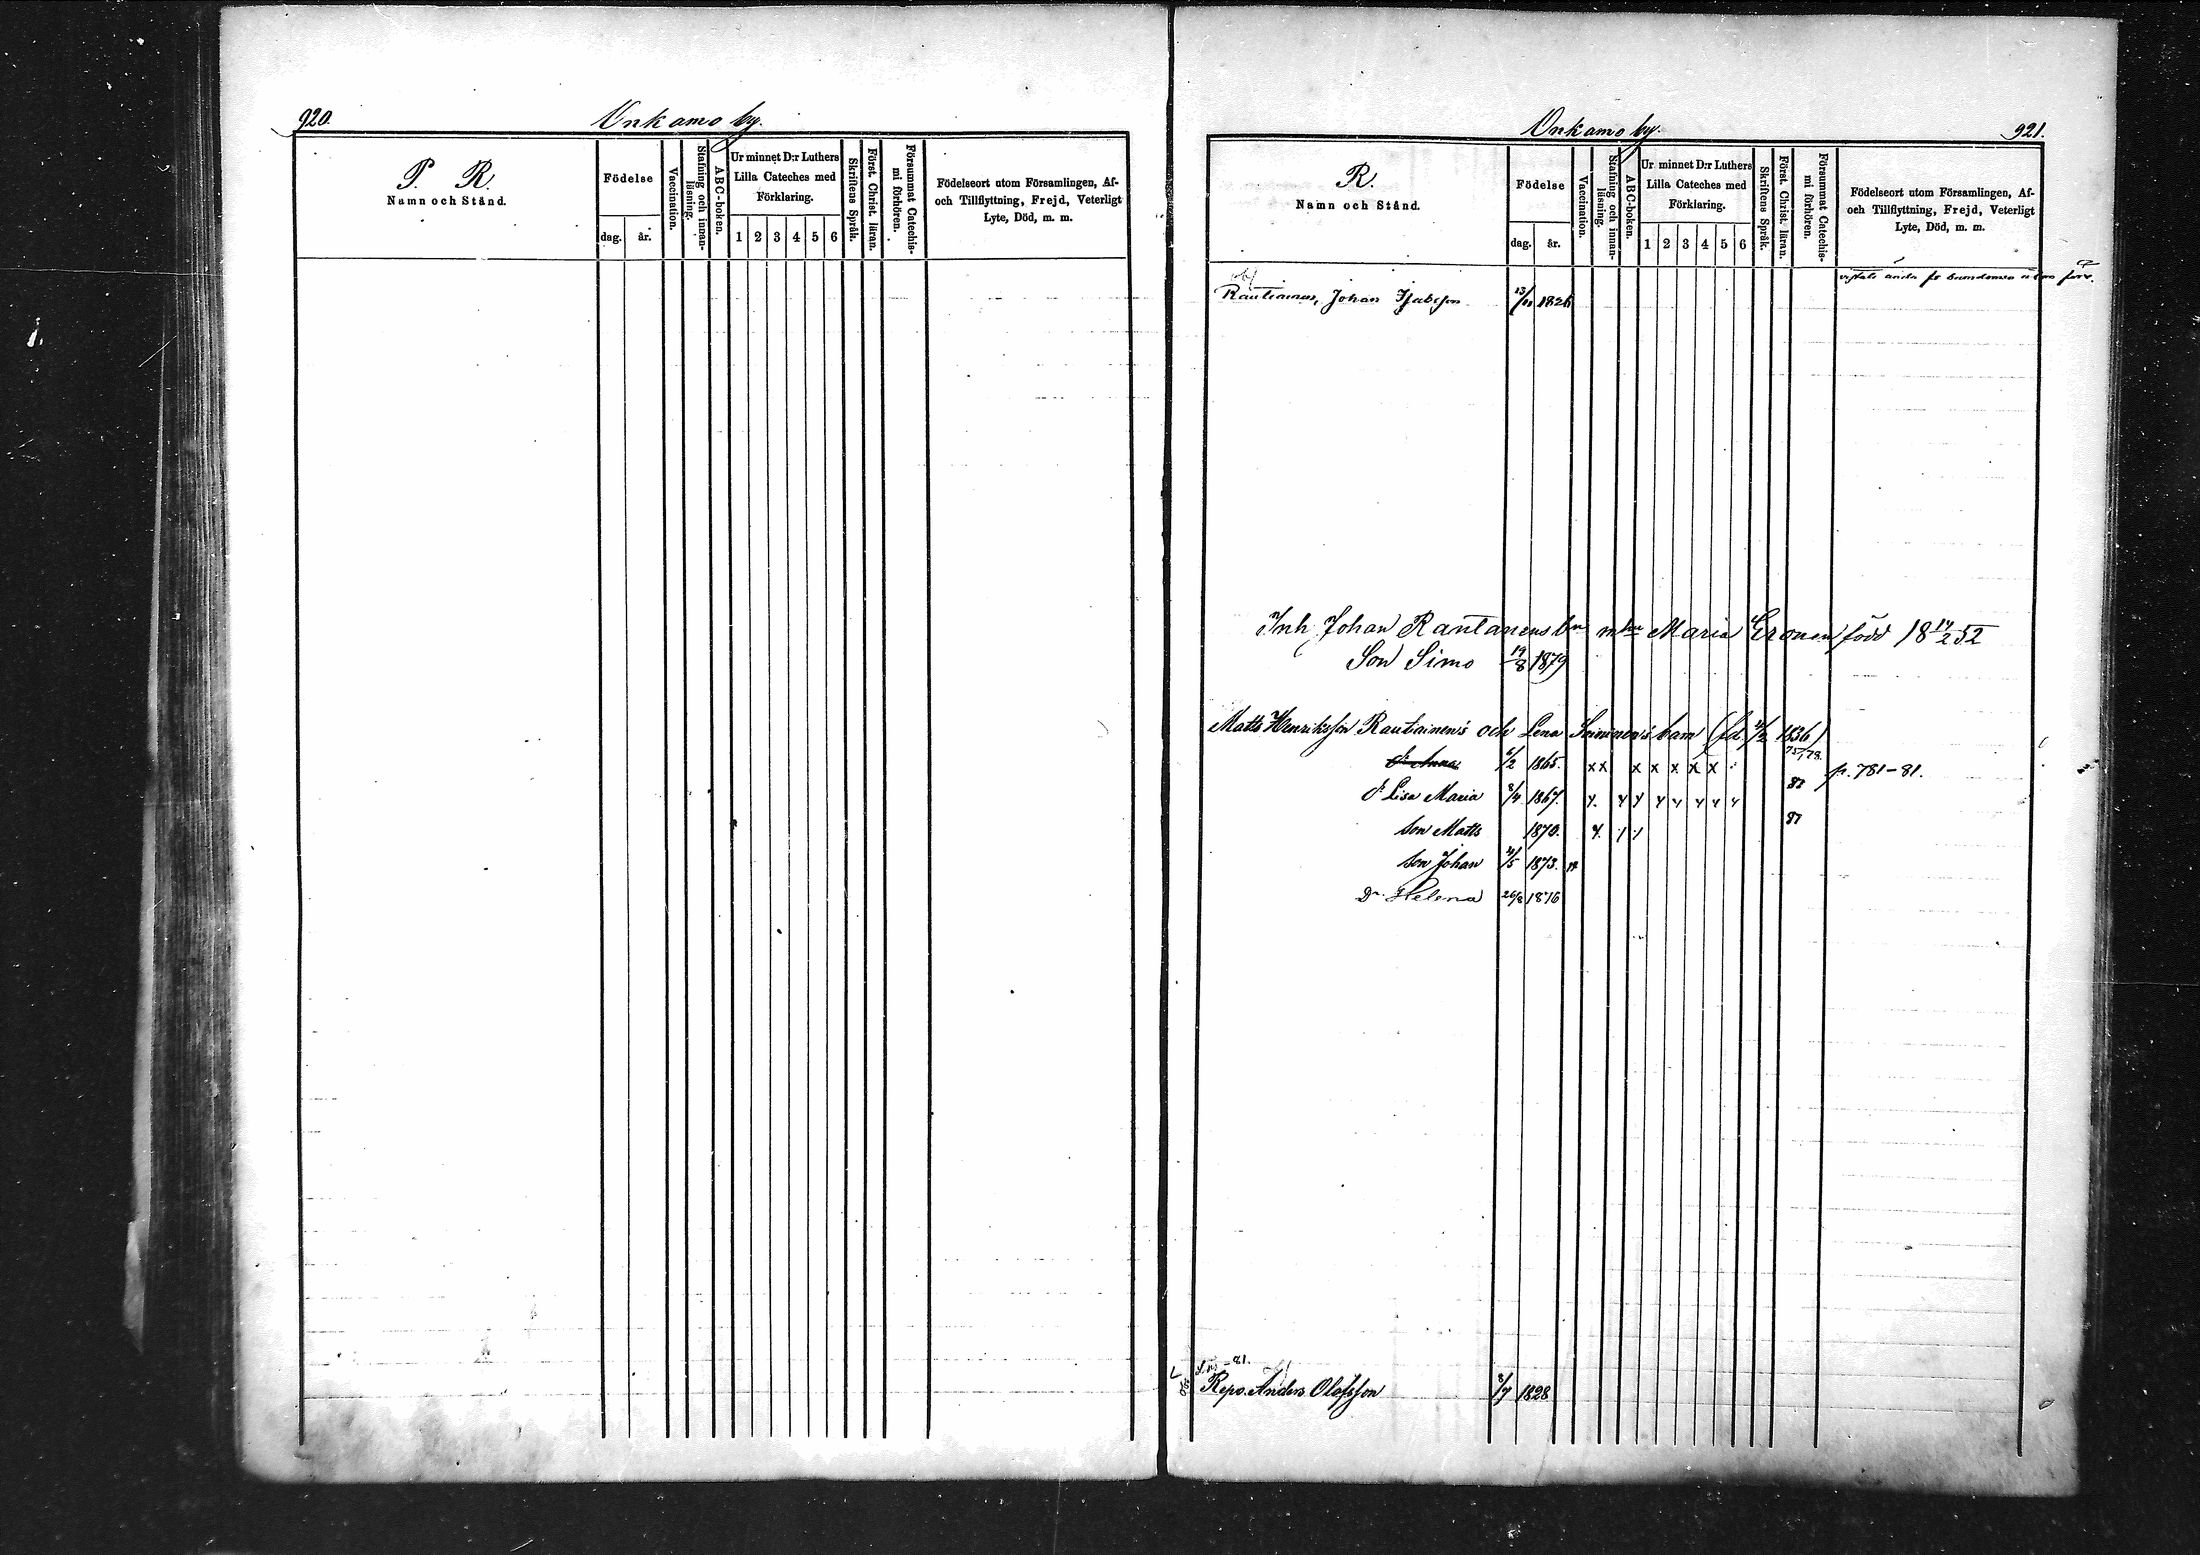 920.
Onkamo by.
P. R.
Namn och Stånd.
Födelse
dag.
år.
Vaccination.
Stafning och innanläsning.
ABC-boken.
Ur minnet D:r Luthers
Lilla Cateches med
Förklaring.
1 2 3 4 5 6
Skriftens Språk.
Först. Christ. läran.
Försummat Catechismi förhören.
Födelseort utom Församlingen, Af-
och Tillflyttning, Frejd, Veterligt
Lyte, Död, m. m.
Onkamo by.
921.
R.
Namn och Stånd.
Födelse
dag.
år.
Vaccination.
Stafning och innanläsning.
ABC-boken.
Ur minnet D:r Luthers
Lilla Cateches med
Förklaring.
1 2 3 4 5 6
Skriftens Språk.
Först. Christ. läran.
Försummat Catechismi förhören.
Födelseort utom Församlingen, Af-
och Tillflyttning, Frejd, Veterligt
Lyte, Död, m. m.
Johan 1826
Inh Johan Rautanens Maria Eronen född 18 17/2 52
Son Simo 19/8 1879
Matts Henriksson Rautiainen's och Lena barn (fd. 4/2 1836)
d. Anna 6/2 1865. x x x x x x x 75, 78. p. 781-81.
d. Lisa Maria 8/4 1867. 81
Son Matts 1870. 81
Son Johan 4/5 1873.
Dr. Helena 26/8 1876
-81.
Repo. Anders Olofsson 8/7 1828